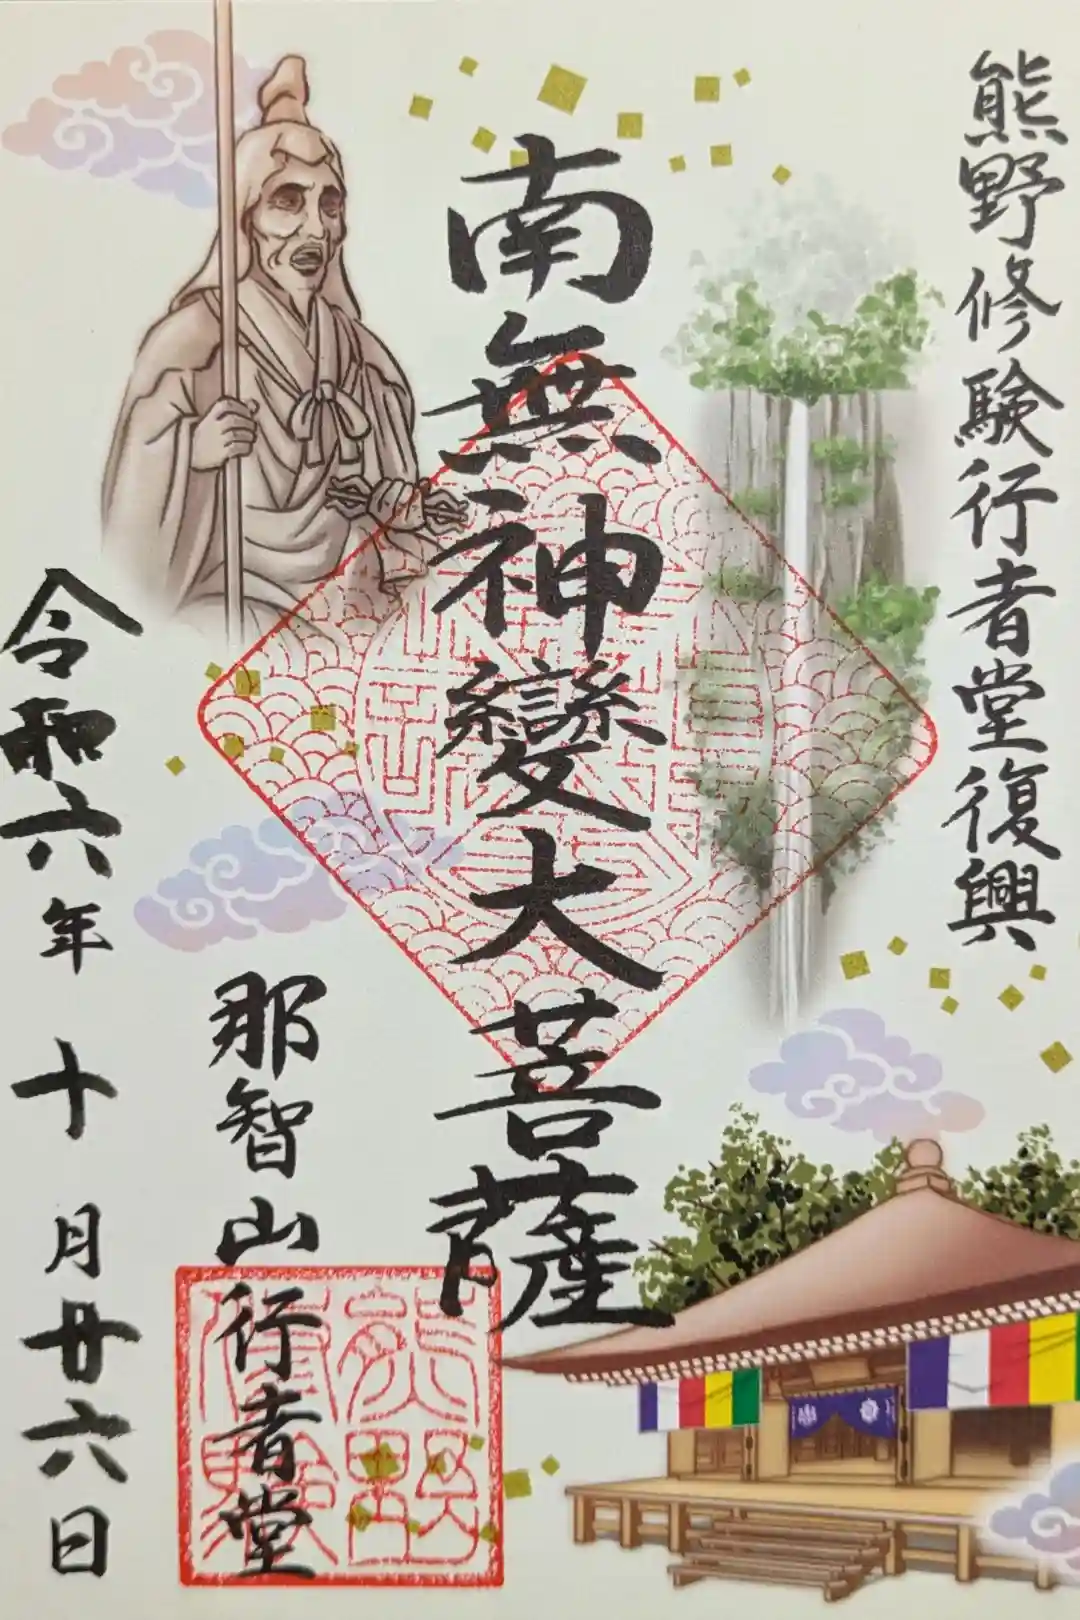 熊野修験行者堂復興
南無神變大菩薩
那智山行者堂
令和六年十月廿六日
熊野
修験